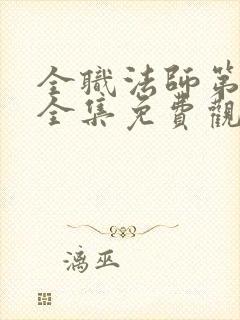 全職法師第
全集免費觀
漓巫